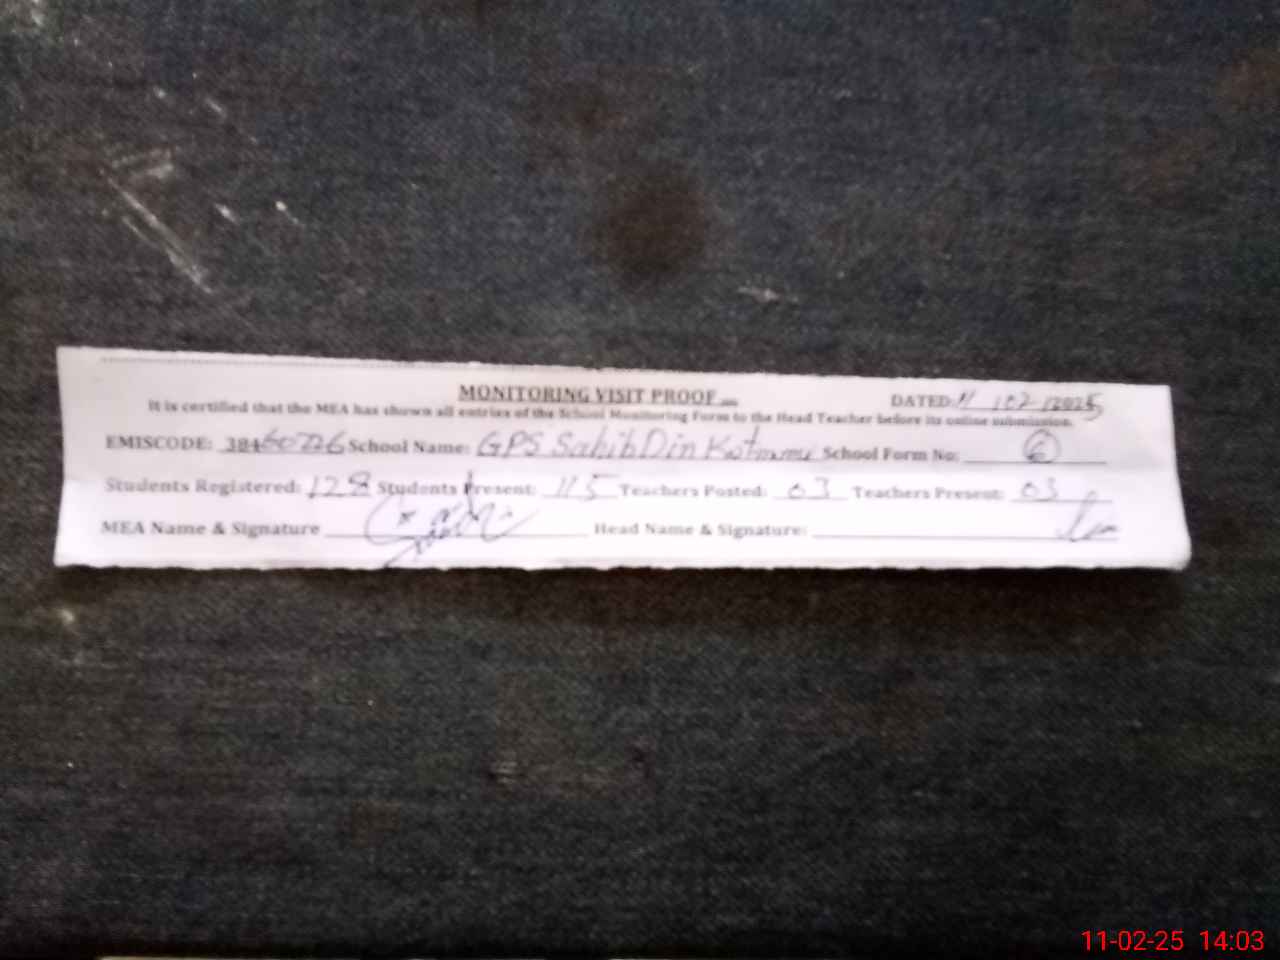 MONITORING VISIT PROOF
DATED: 11 / 02 / 2025
It is certified that the MEA has shown all entries of the School Monitoring Form to the Head Teacher before its online submission.
EMISCODE: 38460226 School Name: GPS Sahib Din School Form No: 6
Students Registered: 128 Students Present: 115 Teachers Posted: 03 Teachers Present: 03
MEA Name & Signature Head Name & Signature:
11-02-25 14:03